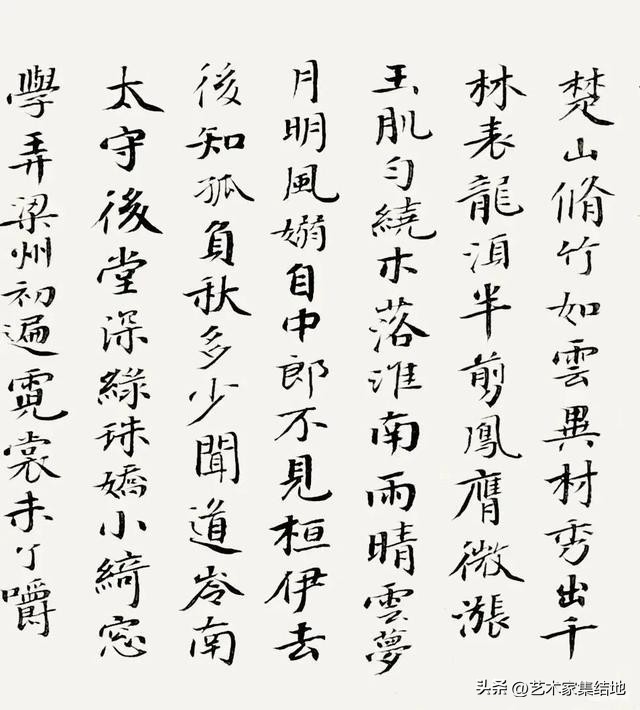 楚山脩竹如雲異材秀出千
林表龍湏半剪鳳膺微漲
玉肌匀繞木落淮南雨晴雲夢
月明風嫋自中郎不見桓伊去
後知孤負秋多少聞道岺南
太守後堂深綠珠嬌小綺窓
學弄梁州初遍霓裳未了嚼
头条@艺术家集结地